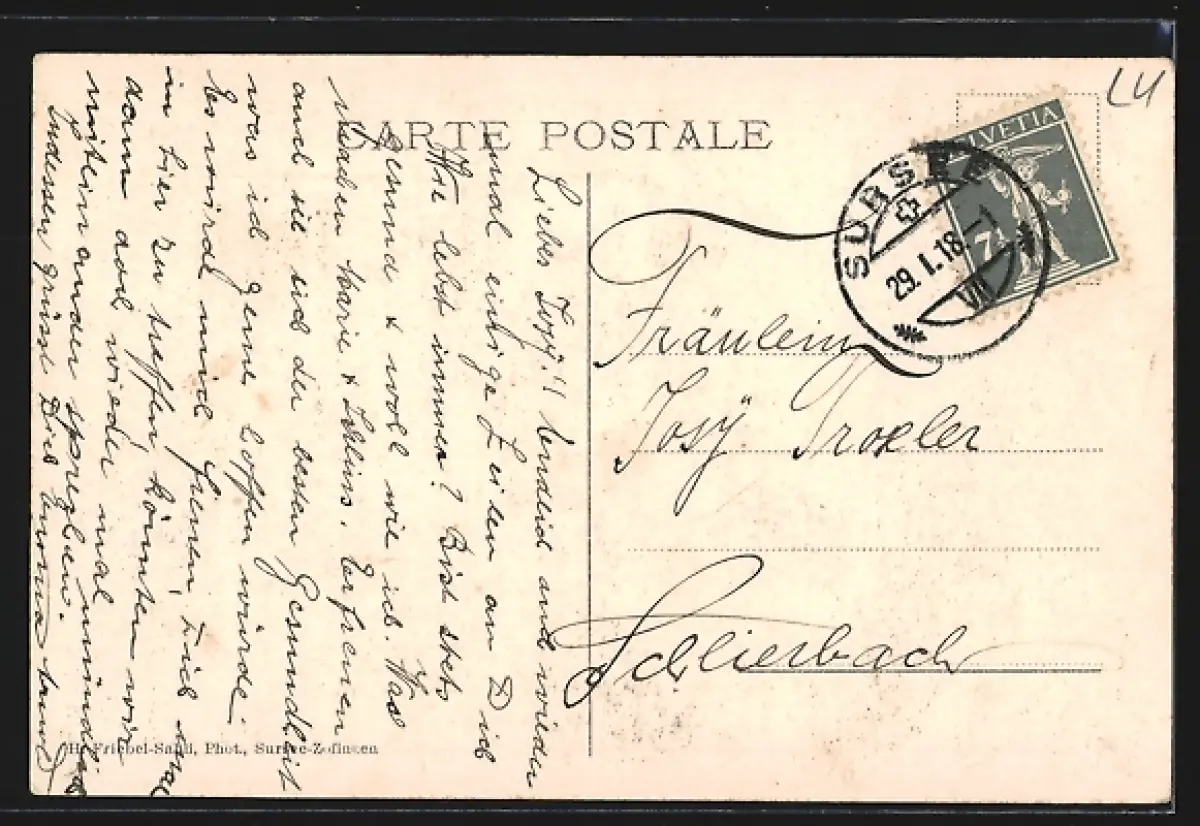 CARTE POSTALE
LU
HELVETIA
7½
SURSEE
29.I.18-7
VII
Fräulein
Josÿ Troxler
Schlierbach
Liebes Josy!! Endlich auch wieder
mal einige Zeilen an Dich
Wie lebst immer? Bist stets
gesund & wohl wie ich. Was
machen Marie & Erfreuen
auch sie sich der besten Gesundheit
was ich gerne hoffen würde.
Es würde mich freuen, Euch mal
in hier zu treffen, könnten wir
dann doch wieder mal mündlich
miteinander sprechen.
Indessen grüsst Dich Emma
H. Friebel-Sandi, Phot., Sursee-Zofingen